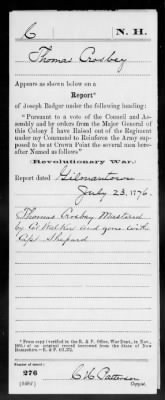 C N. H.
Thomas Crosbey
Appears as shown below on a
Report*
of Joseph Badger under the following heading:
"Pursuant to a vote of the Council and As-
sembly and by orders from the Major General of
this Colony I have Raised out of the Regiment
under my Command to Reinforce the Army sup-
posed to be at Crown Point the several men here-
after Named as follows"
(Revolutionary War.)
Report dated Gilmantown
July 23, 1776.
Thomas Crosbey Mustered
by Cl Walker and gone with
Cap. Shepard
*From copy (verified in the R. & P. Office, War Dept., in Nov.,
of an original record borrowed from the State of New
Hampshire—R. & P.
Number of record:
276
C H Patterson
Copyist.